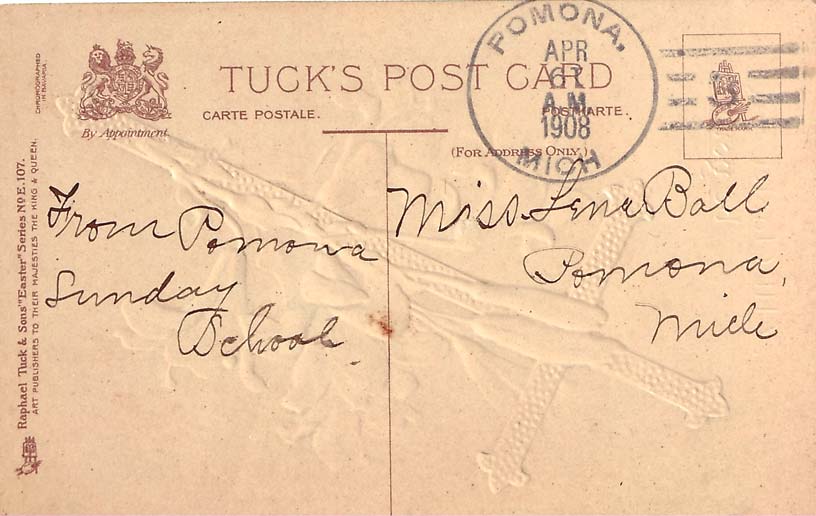 CHROMOGRAPHED
IN BAVARIA.
By Appointment.
TUCK'S POST CARD
CARTE POSTALE.
POSTKARTE.
(FOR ADDRESS ONLY.)
POMONA,
APR
6
A.M.
1908
MICH
TRADE MARK
Raphael Tuck & Sons' "Easter" Series No E. 107.
ART PUBLISHERS TO THEIR MAJESTIES THE KING & QUEEN.
From Pomona
Sunday
School.
Miss Lena Ball
Pomona,
Mich